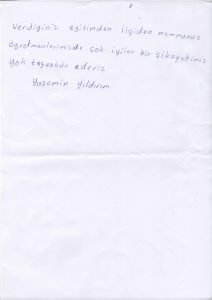 8
verdiğiniz eğitimden ilgiden memnunuz
öğretmenlerimizde çok iyiler bir şikayetimiz
yok teşekkür ederiz
Yasemin yıldırım